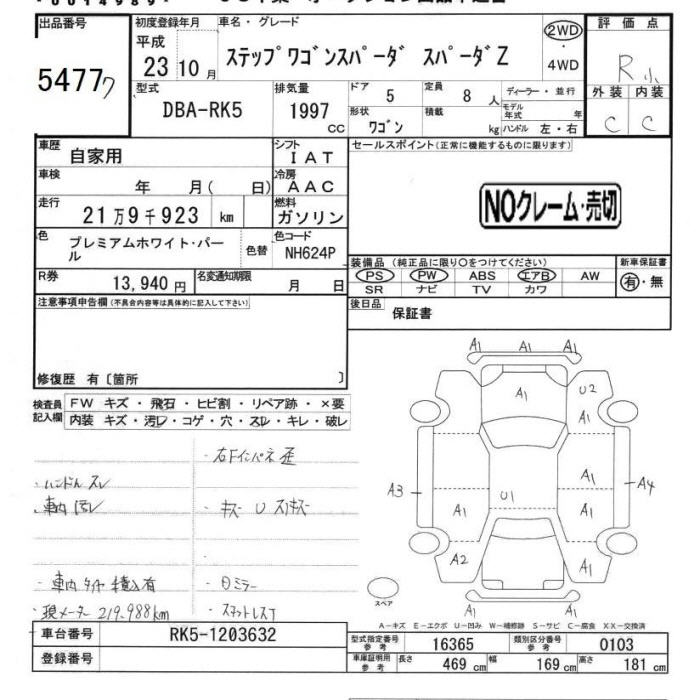 出品番号
5477ワ
初度登録年月
平成
23 10 月
車名・グレード
ステップワゴンスパーダ スパーダZ
2WD
・
4WD
評価点
R 小
型式
DBA-RK5
排気量
1997
CC
ドア
5
定員
8 人
ディーラー・並行
モデル年式 年
外装 内装
C C
形状
ワゴン
積載
kg
ハンドル 左・右
車歴
自家用
シフト
IAT
セールスポイント(正常に機能するものに限ります)
車検
年 月( 日)
冷房
AAC
走行
21万9千923 km
燃料
ガソリン
NOクレーム・売切
色
プレミアムホワイト・パール
色替
色コード
NH624P
装備品 (純正品に限り○をつけてください)
PS PW ABS エアB AW
SR ナビ TV カワ
新車保証書
有・無
R券
13,940 円
名変通知期限
月 日
後日品
保証書
注意事項申告欄(不具合内容等は具体的に記入して下さい)
修復歴 有〔箇所 〕
検査員記入欄
FW キズ・飛石・ヒビ割・リペア跡・×要
内装 キズ・汚レ・コゲ・穴・スレ・キレ・破レ
・右Fインパネ歪
・ハンドルスレ
・車内汚レ
・キズ U スリキズ
・車内タイヤ積込有
・Dミラー
・現メーター 219,988km
A1 A1 A1
A1 U2
A1
A1
A3 U1 A4
A1 A1
A2 A1
A1 A1 A1
スペア
A-キズ E-エクボ U-凹み W-補修跡 S-サビ C-腐食 XX-交換済
車台番号
RK5-1203632
登録番号
型式指定番号
参考
16365
類別区分番号
参考
0103
車庫証明用
参考
長さ 469 cm
幅 169 cm
高さ 181 cm